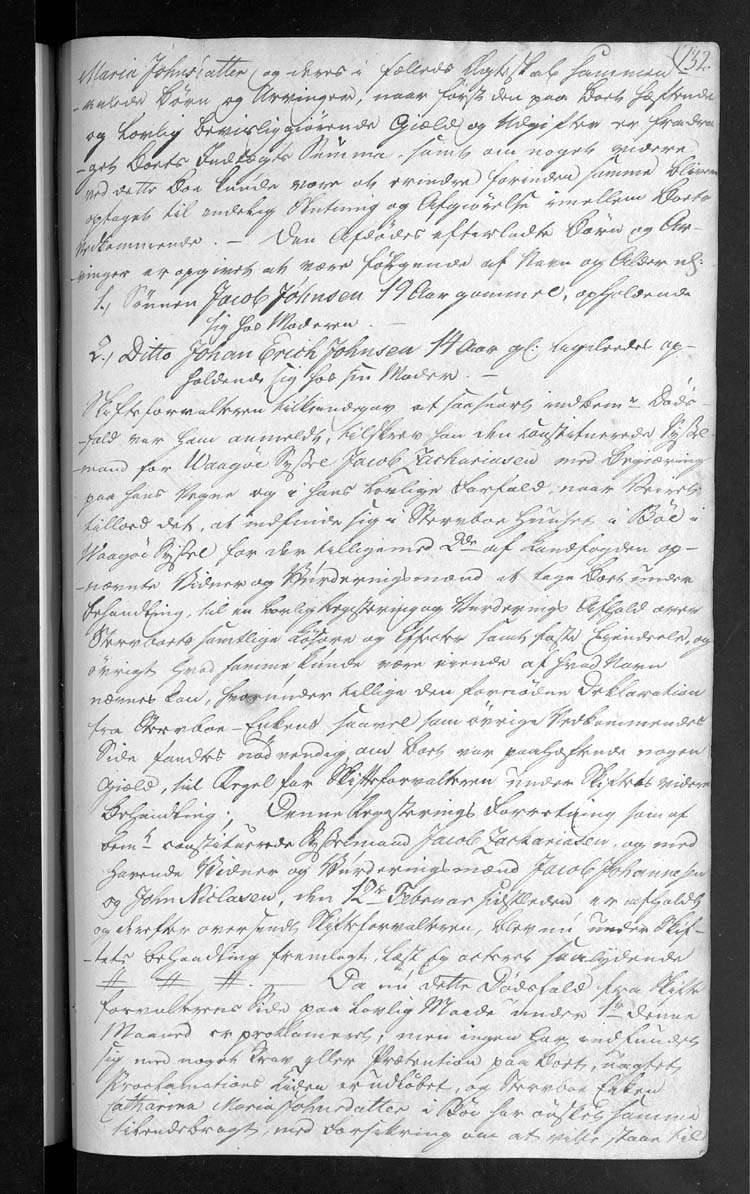 132.
Maria Johnsdatter og deres i fælleds Ægteskab sammen-
-avlede Børn og Arvinger, naar først den paa Boet hæftende
og lovlig beviisliggiørende Giæld og Udgifter er fradra-
-get Boets Indtægts Summa, samt om noget videre
ved dette Boe kunde være at erindre forinden samme bliver
optaget til endelig Slutning og Afgiørelse imellem Boets
Vedkommende. - Den Afdødes efterladte Børn og Ar-
-vinger er opgivet at være følgende af Navn og Alder nl:
1., Sønnen Jacob Johnsen 19 Aar gammel, opholdende
sig hos Moderen. -
2., Ditto Johan Erich Johnsen 14 Aar gl: ligeledes op-
holdende sig hos sin Moder. -
Skifteforvalteren tilkiendegav at saasnart indbem.te Døds-
-fald var ham anmeldt, tilskrev han den constituerede Syssel-
-mand for Waagøe Syssel Jacob Zachariasen med Begiæring
paa hans Vegne og i hans lovlige Forfald, naar Veiret
tillod det, at indfinde sig i Stervboe Huuset i Bøe i
Waagøe Syssel for der tilligemed 2de af Landfogden op-
-nævnte Vidner og Vurderingsmænd at tage Boet under
Behandling, til en lovlig Registering og Vurderings Afhold over
Stervboets samtlige Løsøre og Effecter samt faste Eiendeele, og
øvrigt hvad samme kunde være eiende af hvad Navn
nævnes kan, hvorunder tillige den fornødne Deklaration
fra Stervboe-Enkens saavel som øvrige Vedkommendes
Side fandtes nødvendig om Boet var paahæftende nogen
Giæld, til Regel for Skifteforvalteren under Skiftets videre
Behandling; Denne Registerings Forretning som af
bem.te constituerede Sysselmand Jacob Zachariasen, og med
havende Vidner og Vurderingsmænd Jacob Johannesen
og John Niclasen, den 12te Februar sidstleden er afholdt
og derefter oversendt Skifteforvalteren, blev nu under Skif-
-tets Behandling fremlagt, læst og acteret saalydende
# # #. - Da nu dette Dødsfald fra Skifte
forvalterens Side paa lovlig Maade under 1te denne
Maaned er proklameret, men ingen har indfundet
sig med noget Krav eller Prætention paa Boet, uagtet
Proclamations Tiden er udløbet, og Stervboe Enken
Catharina Maria Johnsdatter i Bøe har ønsket samme
tilendebragt, med Forsikring om at ville staae til